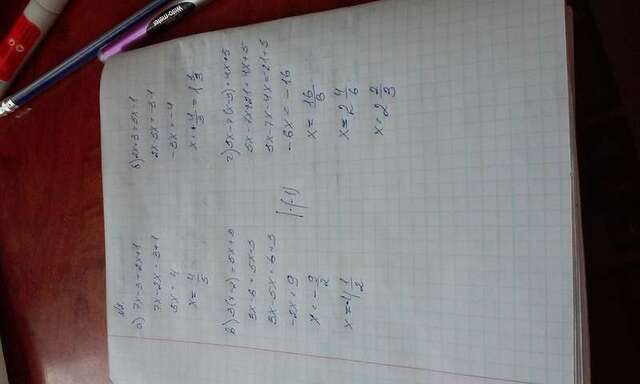 №1.
а) 7x-3=2x+1
7x-2x=3+1
5x=4
x=4/5
б) 2x+3=5x-1
2x-5x=-3-1
-3x=-4
x=+4/3=1 1/3
в) 3(x-2)=5x+
3x-6=5x+3
3x-5x=6+3
-2x=9 |·(-1)
x=-9/2
x=-4 1/2
г) 5x-7(x-3)=4x+5
5x-7x+21=4x+5
5x-7x-4x=-21+5
-6x=-16
x=16/6
x=2 4/6
x=2 2/3